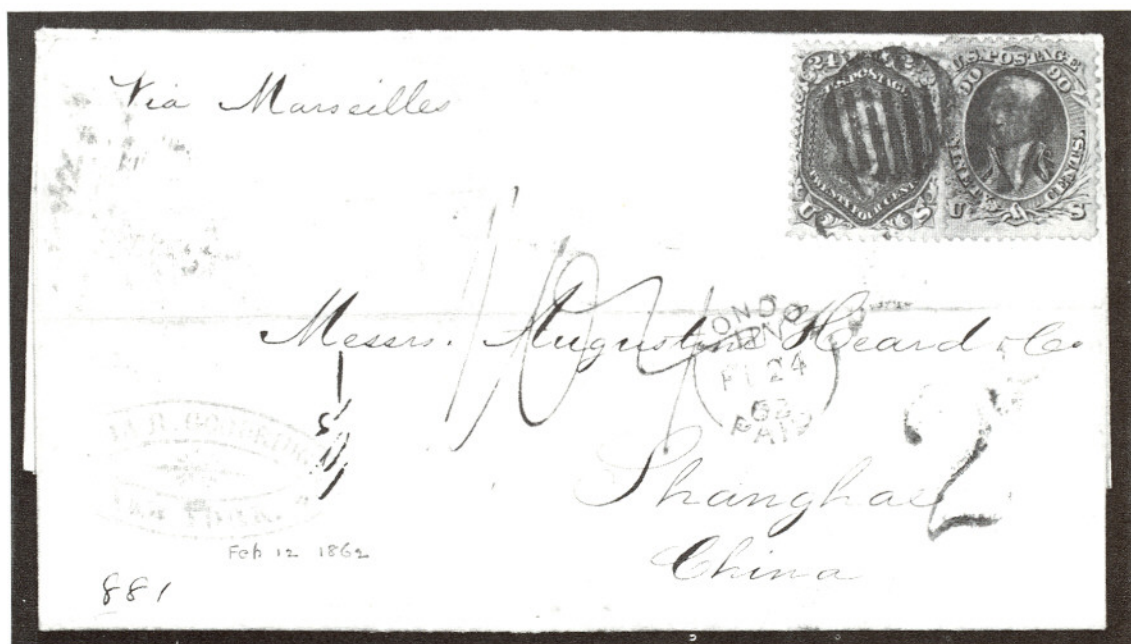 Via Marseilles
24 24
U.S. POSTAGE
TWENTY FOUR CENTS
U S
U.S. POSTAGE
90 90
NINETY CENTS.
U S
Messrs. Augustine Heard & Co
LONDON
FE 24
62
PAID
2
Shanghae
China
Feb 12 1862
881